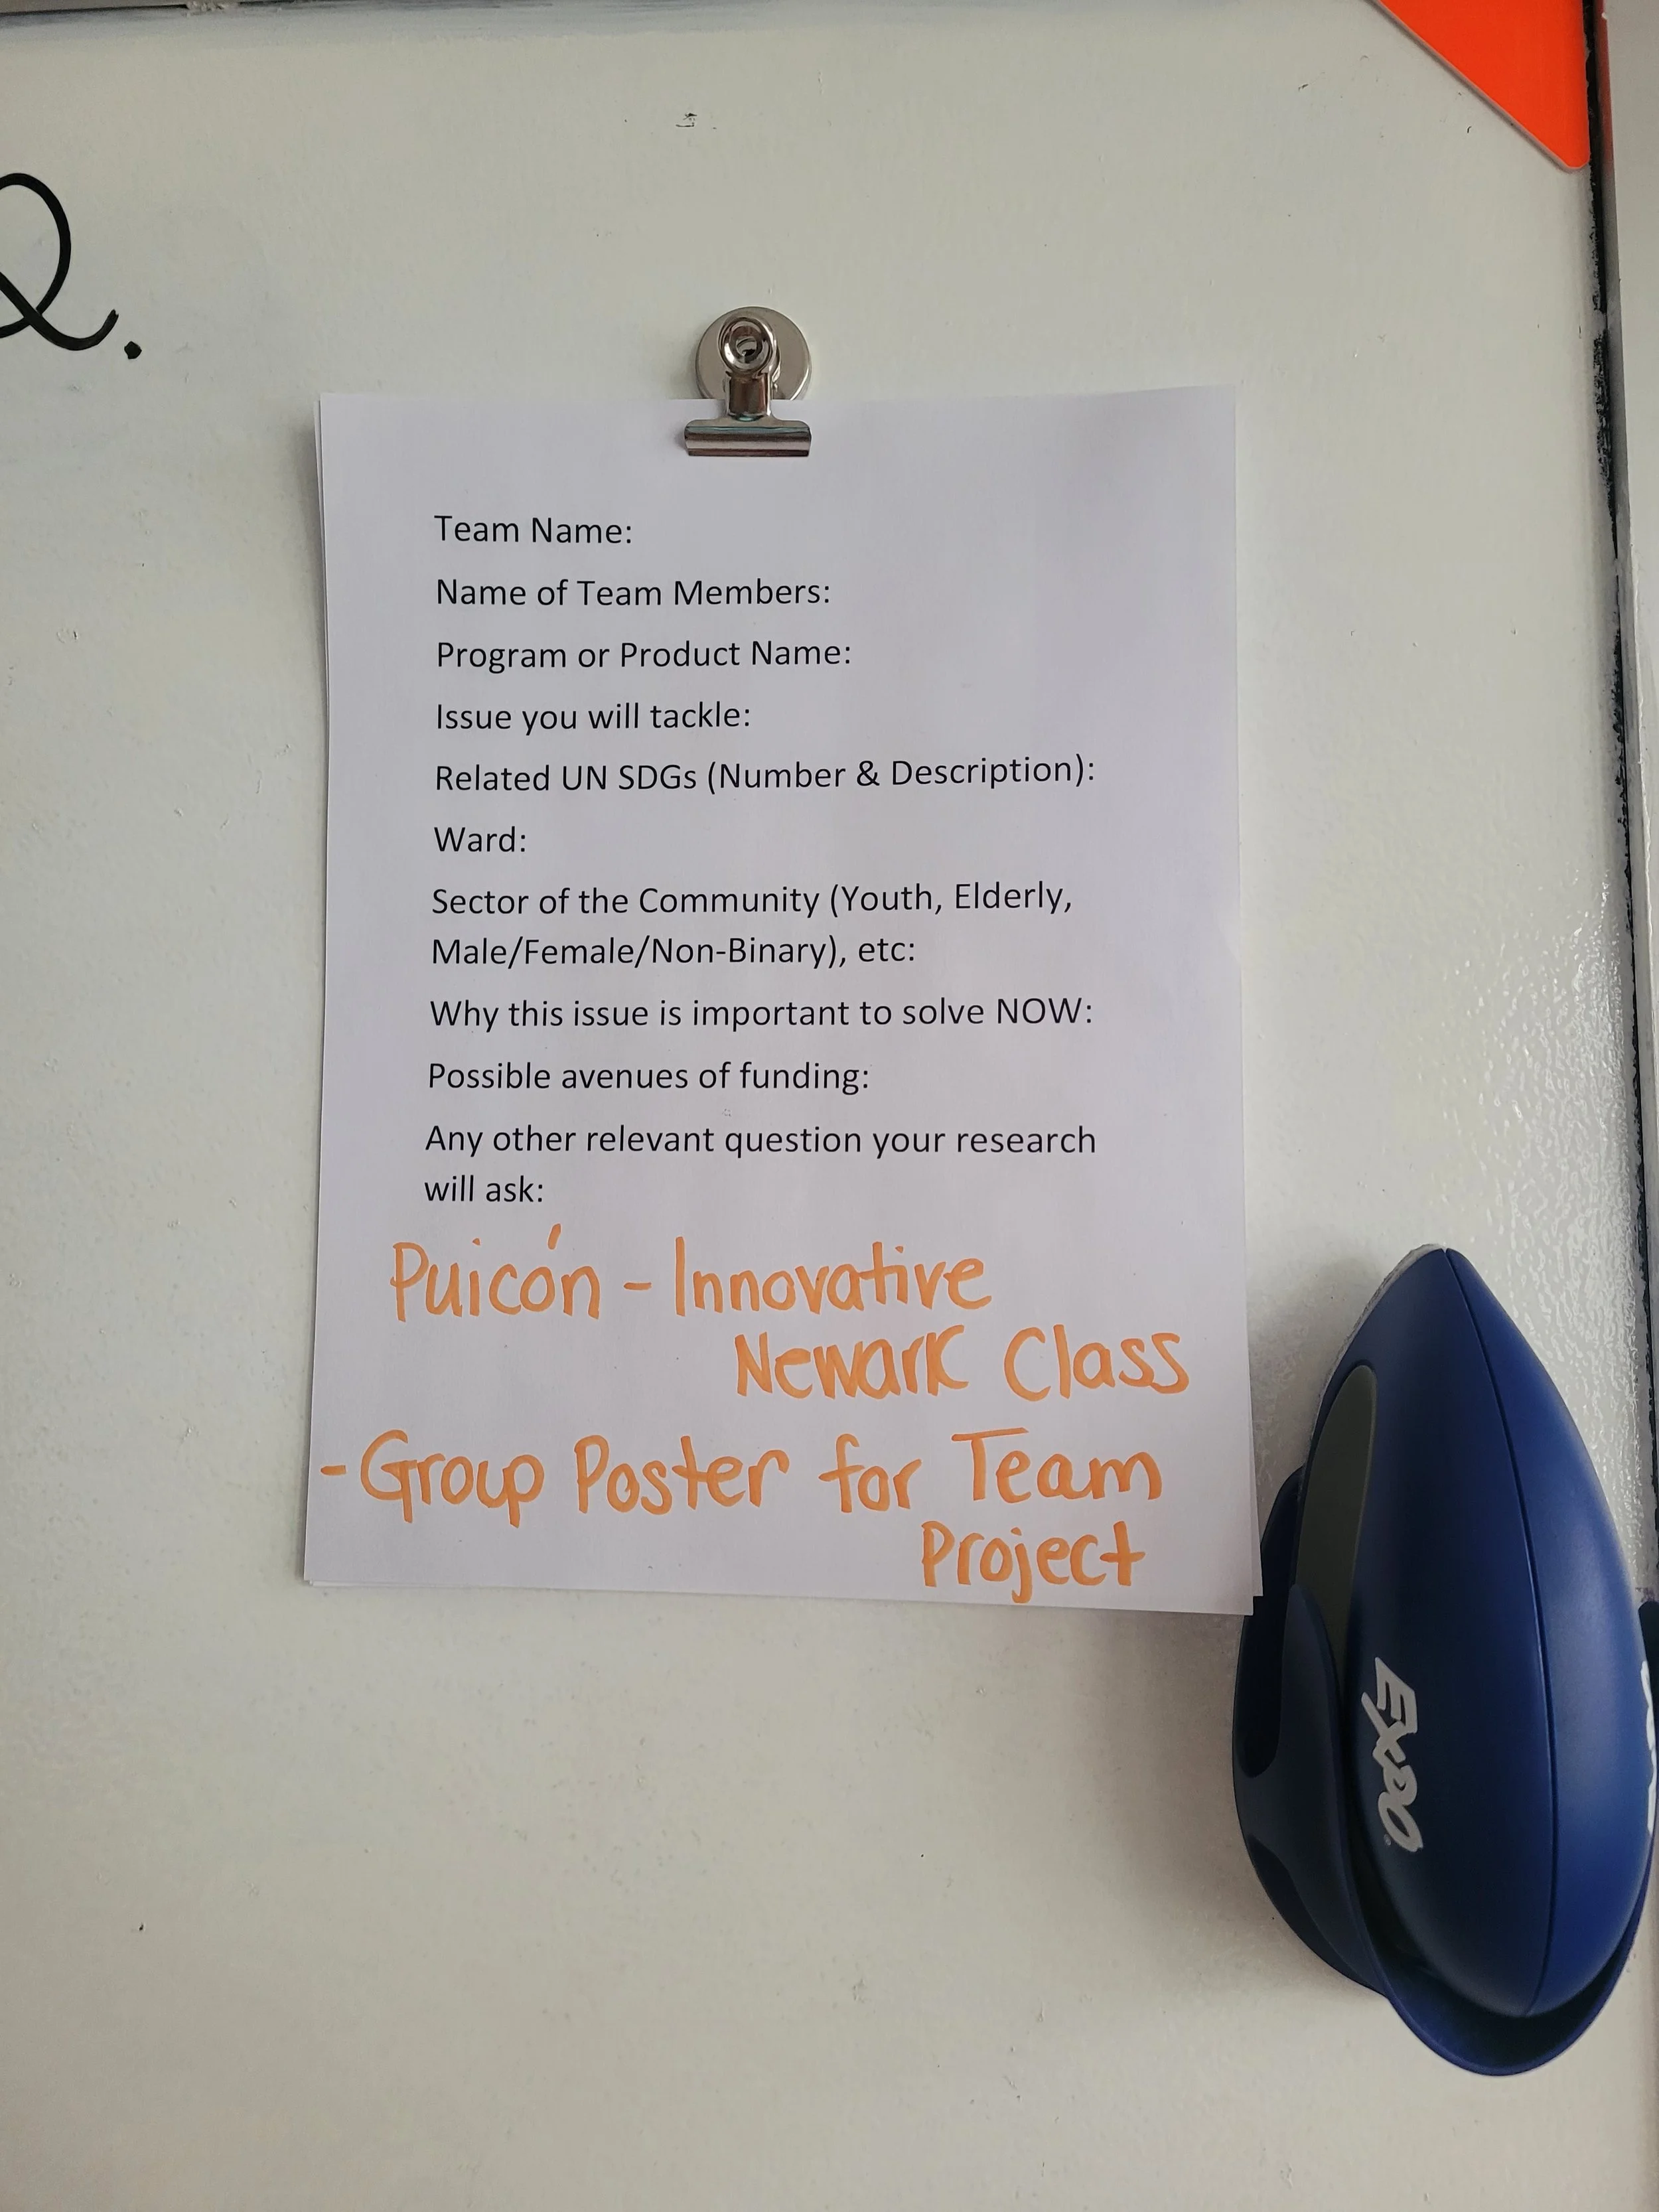 Team Name:
Name of Team Members:
Program or Product Name:
Issue you will tackle:
Related UN SDGs (Number & Description):
Ward:
Sector of the Community (Youth, Elderly,
Male/Female/Non-Binary), etc:
Why this issue is important to solve NOW:
Possible avenues of funding:
Any other relevant question your research
will ask:
Puicón - Innovative
Newark Class
- Group Poster for Team
Project
EXPO